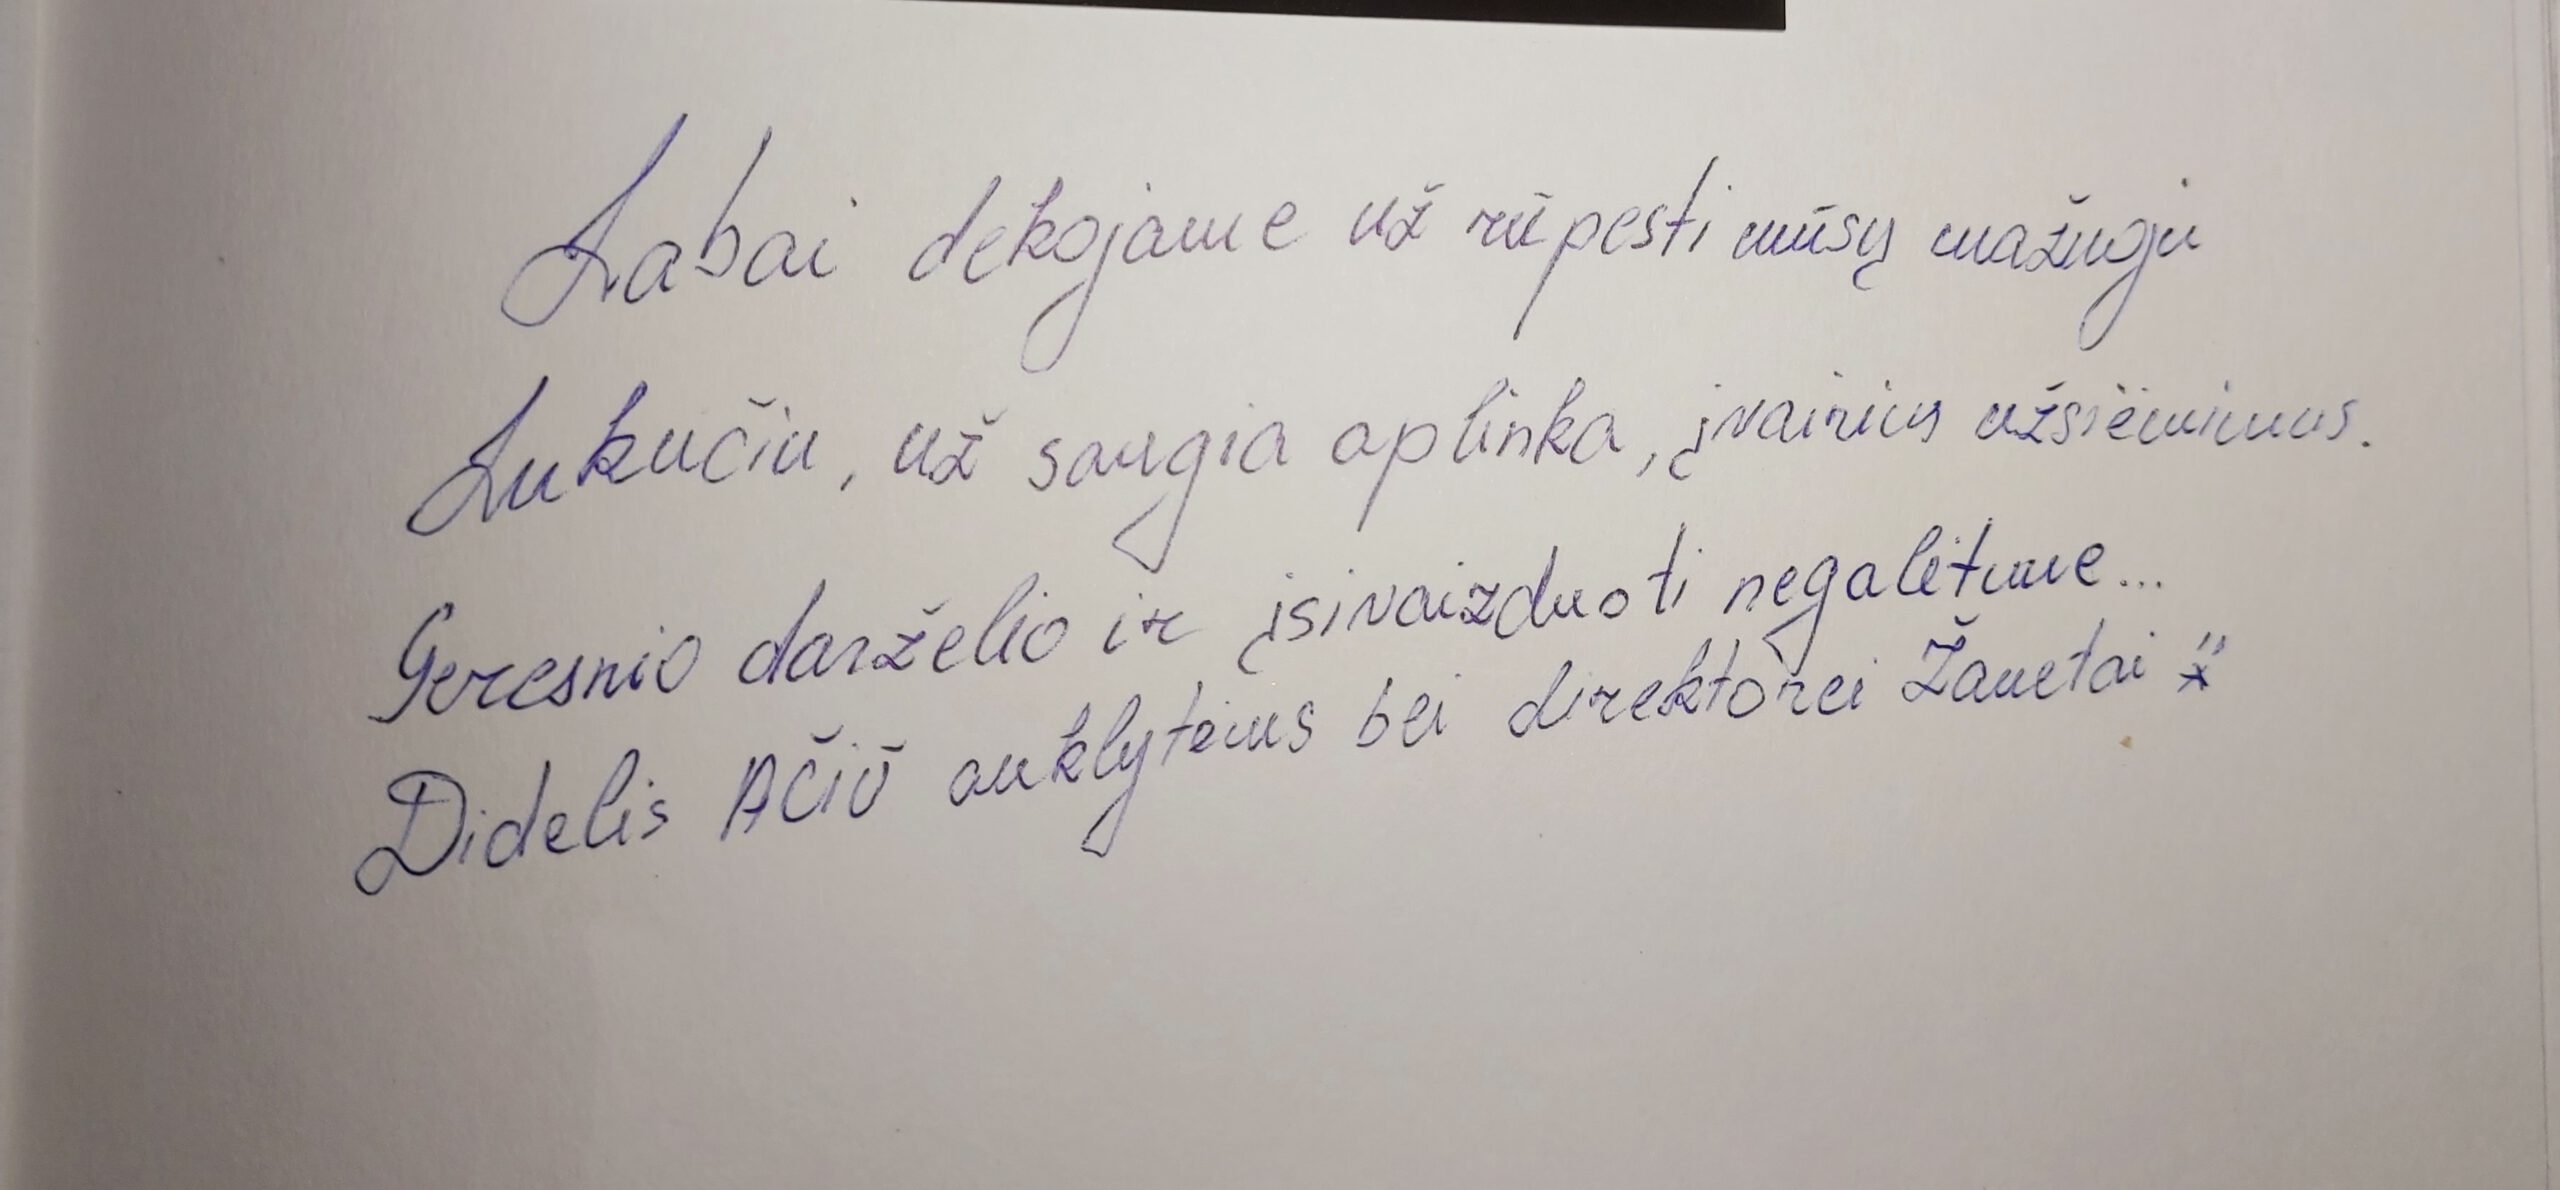 Labai dekojame už rūpesti mūsų mažuoju
Lukučiu, už saugia aplinka, įvairius užsiėmimus.
Geresnio darželio ir įsivaizduoti negalėtume...
Didelis AČIŪ auklytėms bei direktorei Žanetai